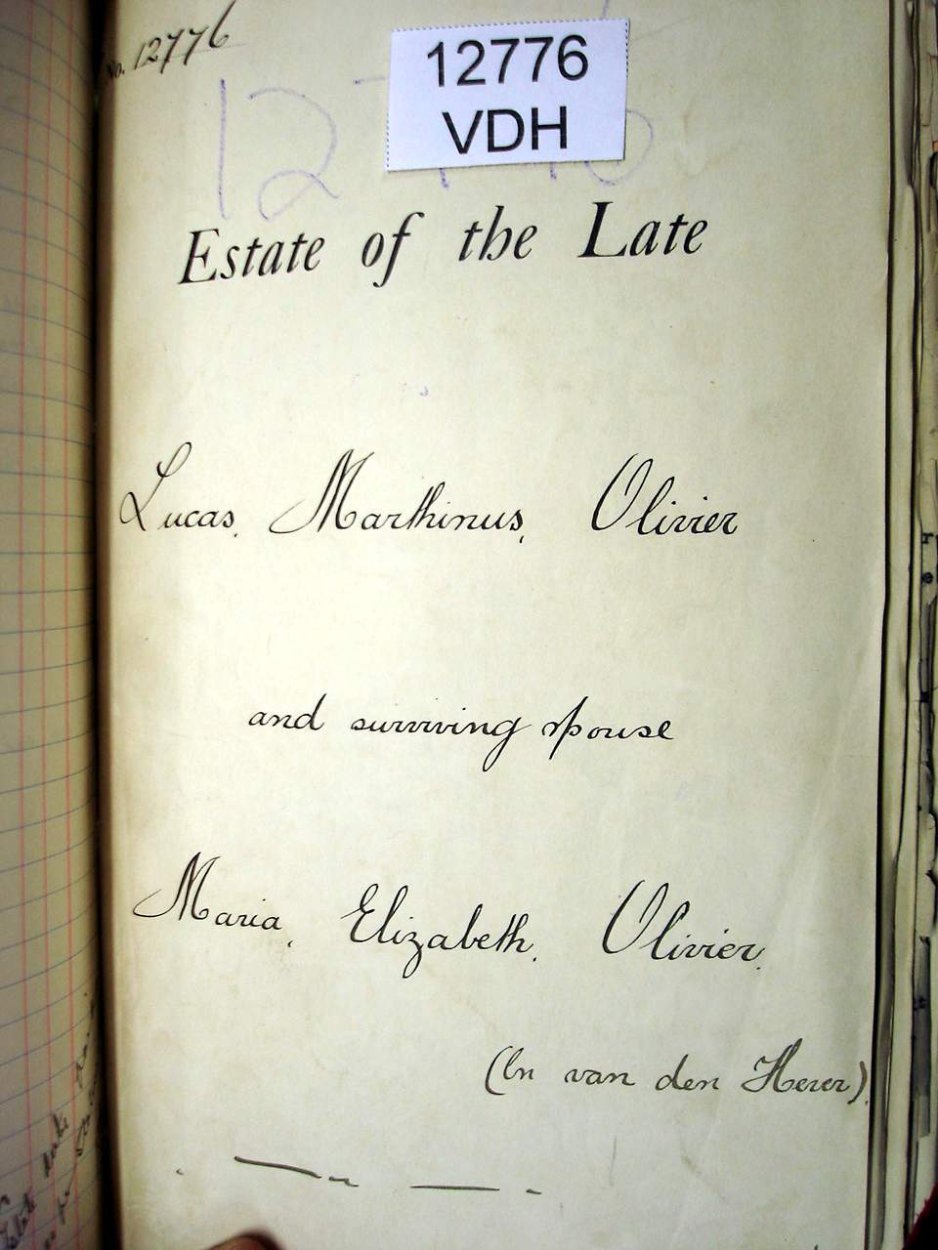 No. 12776
12776
VDH
Estate of the Late
Lucas, Marthinus, Olivier
and surviving spouse
Maria, Elizabeth, Olivier.
van den